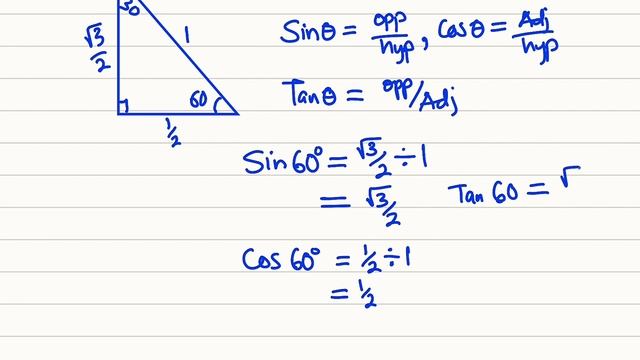 30
√3/2
1
60
1/2
Sinθ = opp/hyp, Cosθ = Adj/hyp
Tanθ = opp/Adj
Sin60° = √3/2 ÷ 1
= √3/2
Tan 60 = √
Cos 60° = 1/2 ÷ 1
= 1/2